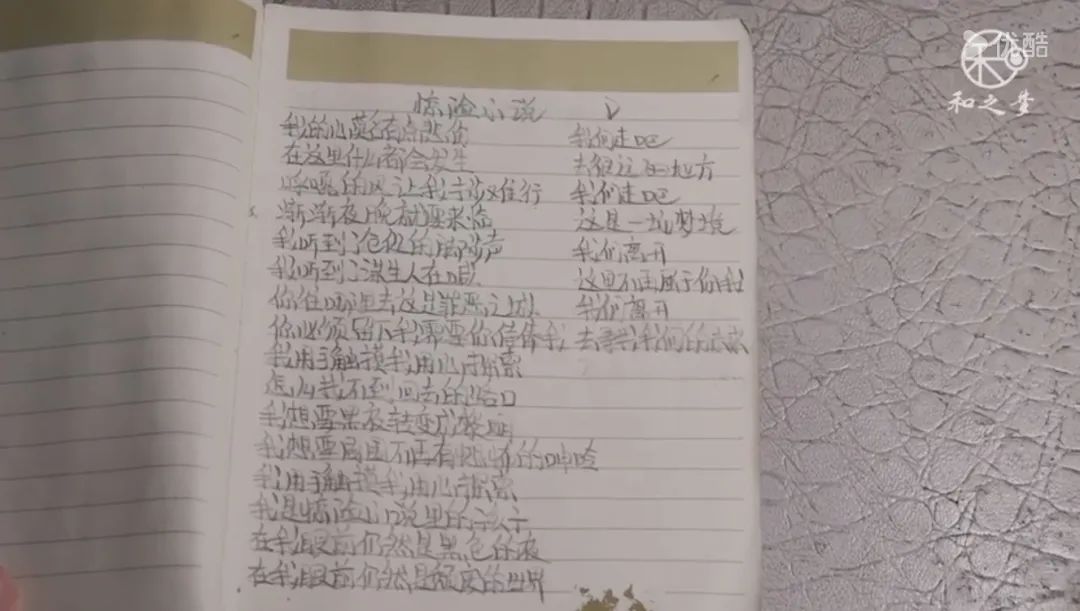 优酷
和之梦
惊险小说
我的心莫名有点悲伤
在这里什么都会发生
呼嘎的风让我寸步难行
渐渐夜晚就要来临
我听到了仓促的脚步声
我听到了陌生人在喊
你往哪里去这是罪恶之城
你必须留下我需要你信任我
我用手触摸我用心探索
怎么找不到回去的路口
我想要黑夜转变成黎明
我想要周围不再有恐怖的呻吟
我用手触摸我用心探索
我是惊险小说里的
在我眼前仍然是黑色的夜
在我眼前仍然是 的世界
我们走吧
去很远的地方
我们走吧
这是一场梦境
我们离开
这里不再属于你我
我们离开
去寻找我们的